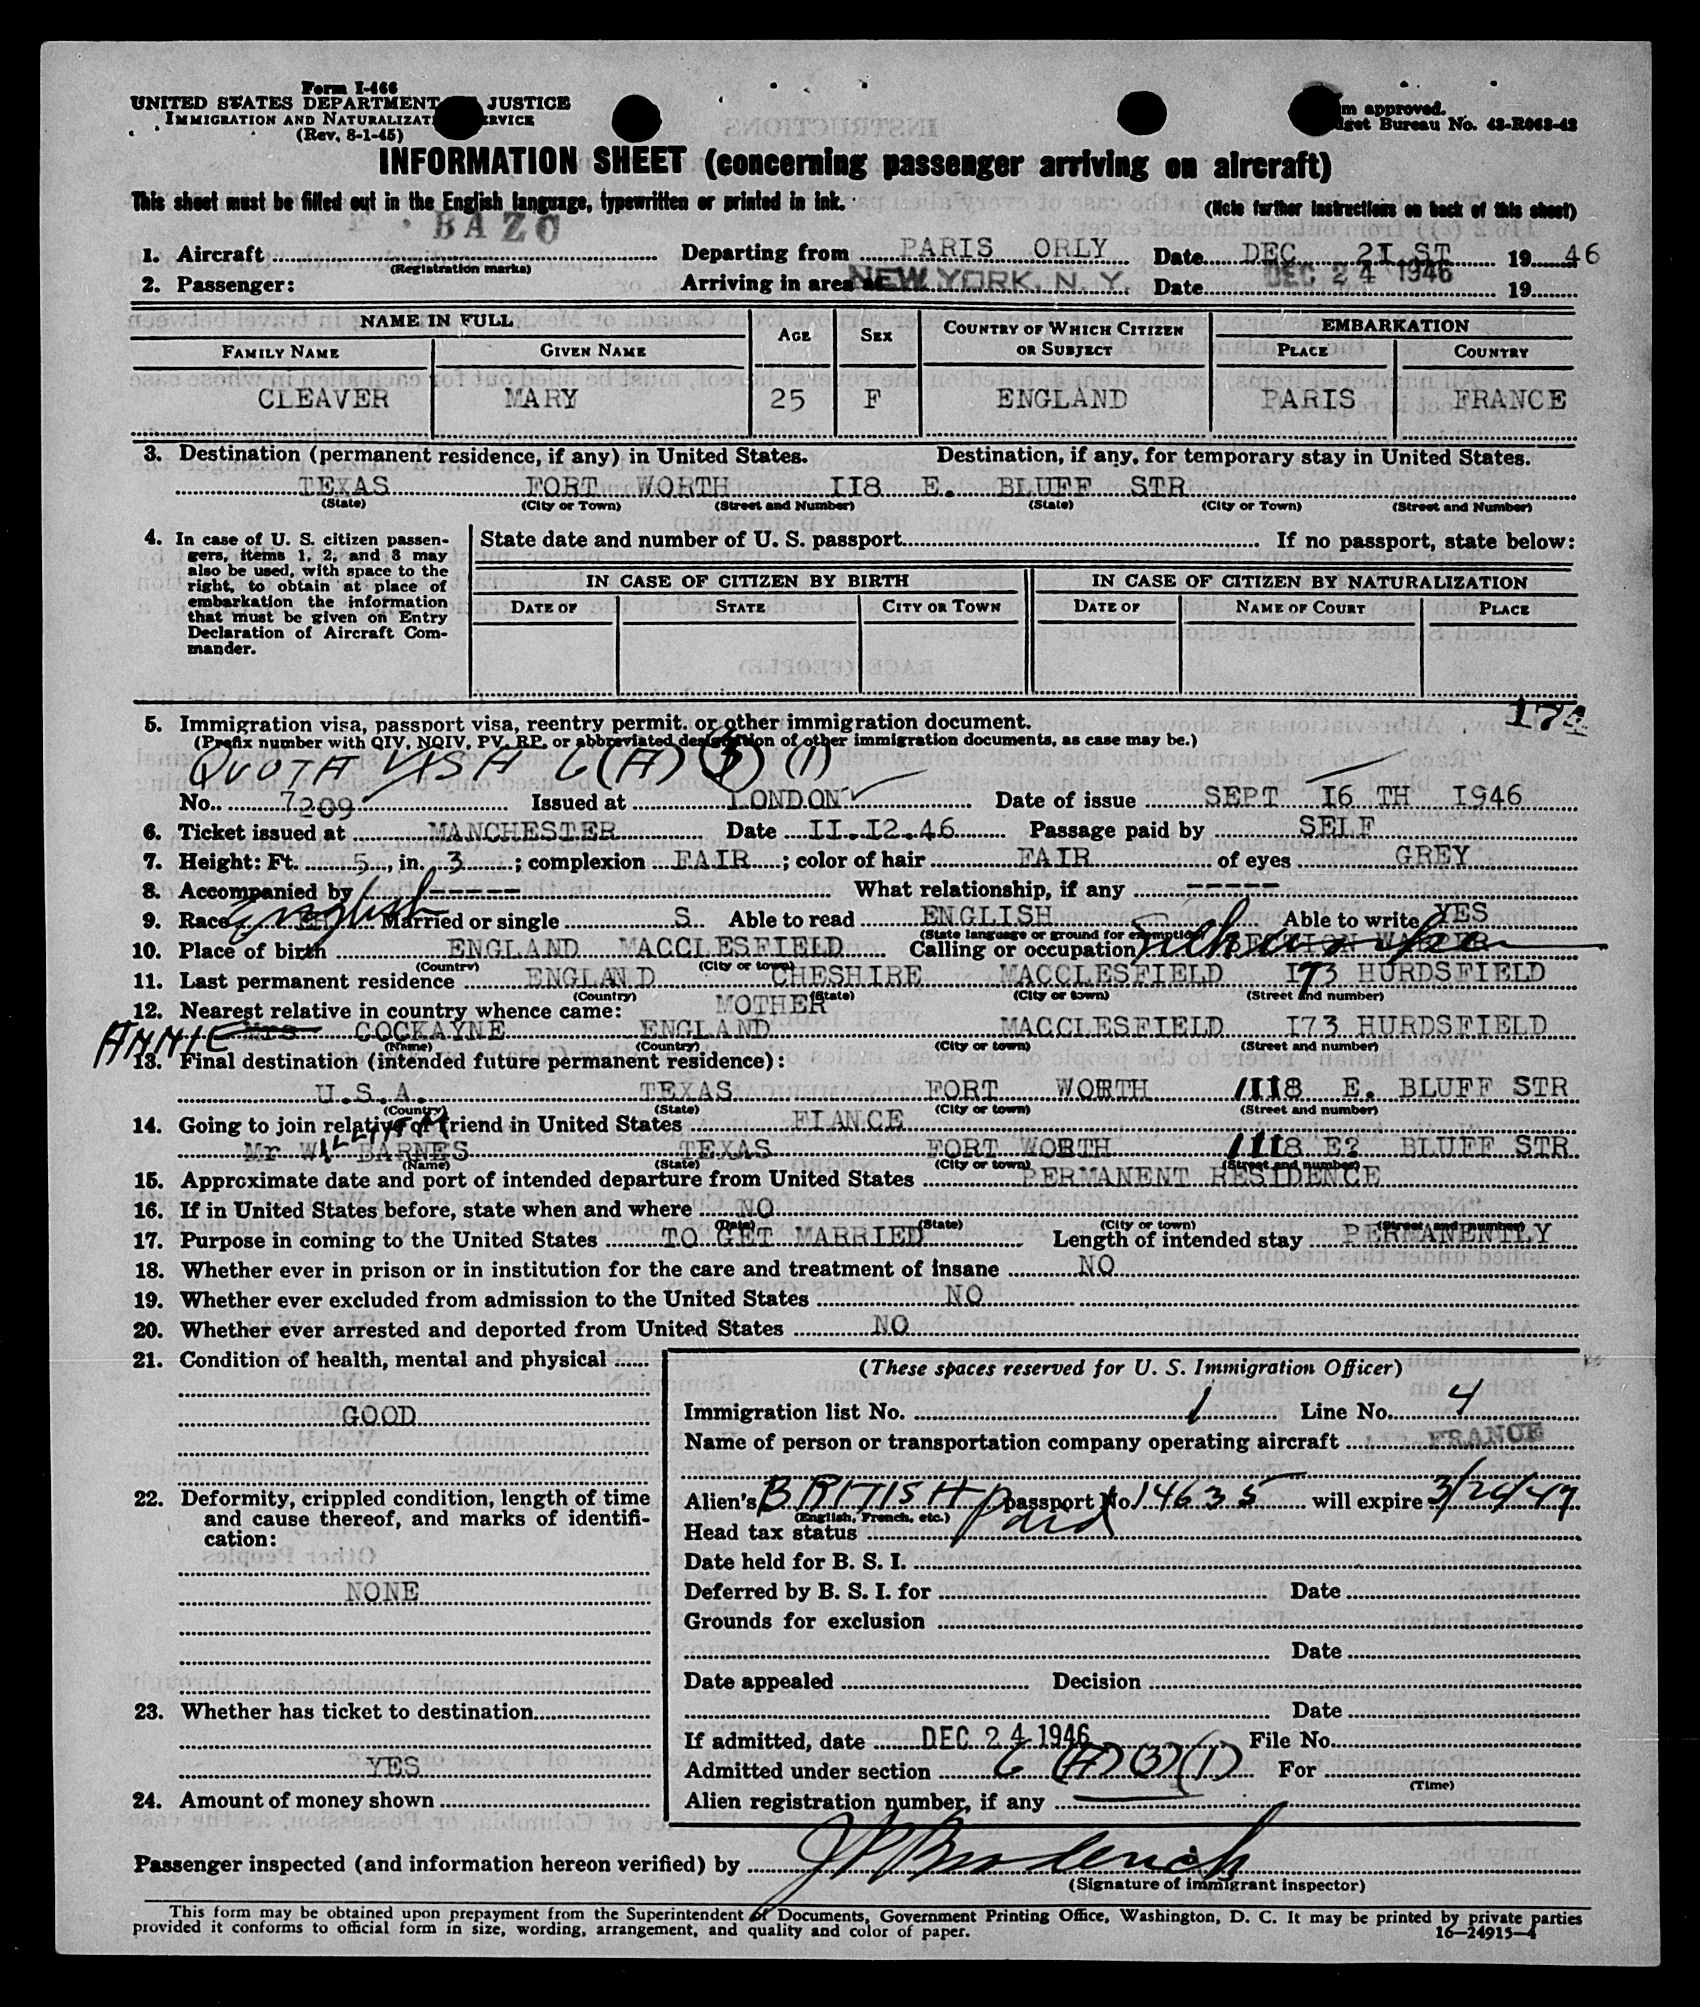 Form I-466
UNITED STATES DEPARTMENT JUSTICE
IMMIGRATION AND NATURALIZAT RVICE
(Rev. 8-1-45)
m approved.
get Bureau No. 43-R063-42
INFORMATION SHEET (concerning passenger arriving on aircraft)
This sheet must be filled out in the English language, typewritten or printed in ink.
(Note further instructions on back of this sheet)
F · BAZO
1. Aircraft Departing from PARIS ORLY Date DEC 2I ST 19 46
(Registration marks)
2. Passenger: Arriving in area at NEW YORK, N. Y. Date DEC 24 1946 19
NAME IN FULL AGE SEX COUNTRY OF WHICH CITIZEN OR SUBJECT EMBARKATION
FAMILY NAME GIVEN NAME PLACE COUNTRY
CLEAVER MARY 25 F ENGLAND PARIS FRANCE
3. Destination (permanent residence, if any) in United States. Destination, if any, for temporary stay in United States.
TEXAS FORT WORTH II8 E. BLUFF STR
(State) (City or Town) (Street and Number) (State) (City or Town) (Street and Number)
4. In case of U. S. citizen passen-
gers, items 1, 2, and 3 may
also be used, with space to the
right, to obtain at place of
embarkation the information
that must be given on Entry
Declaration of Aircraft Com-
mander.
State date and number of U. S. passport If no passport, state below:
IN CASE OF CITIZEN BY BIRTH IN CASE OF CITIZEN BY NATURALIZATION
DATE OF STATE CITY OR TOWN DATE OF NAME OF COURT PLACE
5. Immigration visa, passport visa, reentry permit, or other immigration document.
(Prefix number with QIV, NQIV, PV, RP, or abbreviated designation of other immigration documents, as case may be.)
QUOTA VISA 6(A)(3)(1)
No. 7209 Issued at LONDON Date of issue SEPT I6 TH I946
6. Ticket issued at MANCHESTER Date II.I2.46 Passage paid by SELF
7. Height: Ft. 5, in. 3; complexion FAIR; color of hair FAIR of eyes GREY
8. Accompanied by ----- What relationship, if any -----
9. Race English Married or single S Able to read ENGLISH Able to write YES
(State language or ground for exemption)
10. Place of birth ENGLAND MACCLESFIELD Calling or occupation
(Country) (City or town)
11. Last permanent residence ENGLAND CHESHIRE MACCLESFIELD I73 HURDSFIELD
(Country) (State) (City or town) (Street and number)
12. Nearest relative in country whence came: MOTHER
ANNIE Mrs COCKAYNE ENGLAND MACCLESFIELD I73 HURDSFIELD
(Name) (Country) (City or town) (Street and number)
13. Final destination (intended future permanent residence):
U.S.A. TEXAS FORT WORTH 1118 E. BLUFF STR
(Country) (State) (City or town) (Street and number)
14. Going to join relative or friend in United States FIANCE
Mr WILLIAM BARNES TEXAS FORT WORTH 1118 E? BLUFF STR
(Name) (State) (City or town) (Street and number)
15. Approximate date and port of intended departure from United States PERMANENT RESIDENCE
16. If in United States before, state when and where NO
(Date) (State) (City or town) (Street and number)
17. Purpose in coming to the United States TO GET MARRIED Length of intended stay PERMANENTLY
18. Whether ever in prison or in institution for the care and treatment of insane NO
19. Whether ever excluded from admission to the United States NO
20. Whether ever arrested and deported from United States NO
21. Condition of health, mental and physical
GOOD
22. Deformity, crippled condition, length of time
and cause thereof, and marks of identifi-
cation:
NONE
23. Whether has ticket to destination
YES
24. Amount of money shown
(These spaces reserved for U. S. Immigration Officer)
Immigration list No. 1 Line No. 4
Name of person or transportation company operating aircraft FRANCE
Alien's BRITISH passport No. 14635 will expire 3/26/47
(English, French, etc.)
Head tax status Paid
Date held for B. S. I.
Deferred by B. S. I. for Date
Grounds for exclusion
Date
Date appealed Decision
Date
If admitted, date DEC 24 1946 File No.
Admitted under section 6 (A)(3)(1) For
(Time)
Alien registration number, if any
Passenger inspected (and information hereon verified) by
(Signature of immigrant inspector)
This form may be obtained upon prepayment from the Superintendent of Documents, Government Printing Office, Washington, D. C. It may be printed by private parties
provided it conforms to official form in size, wording, arrangement, and quality and color of paper.
16—24915-4